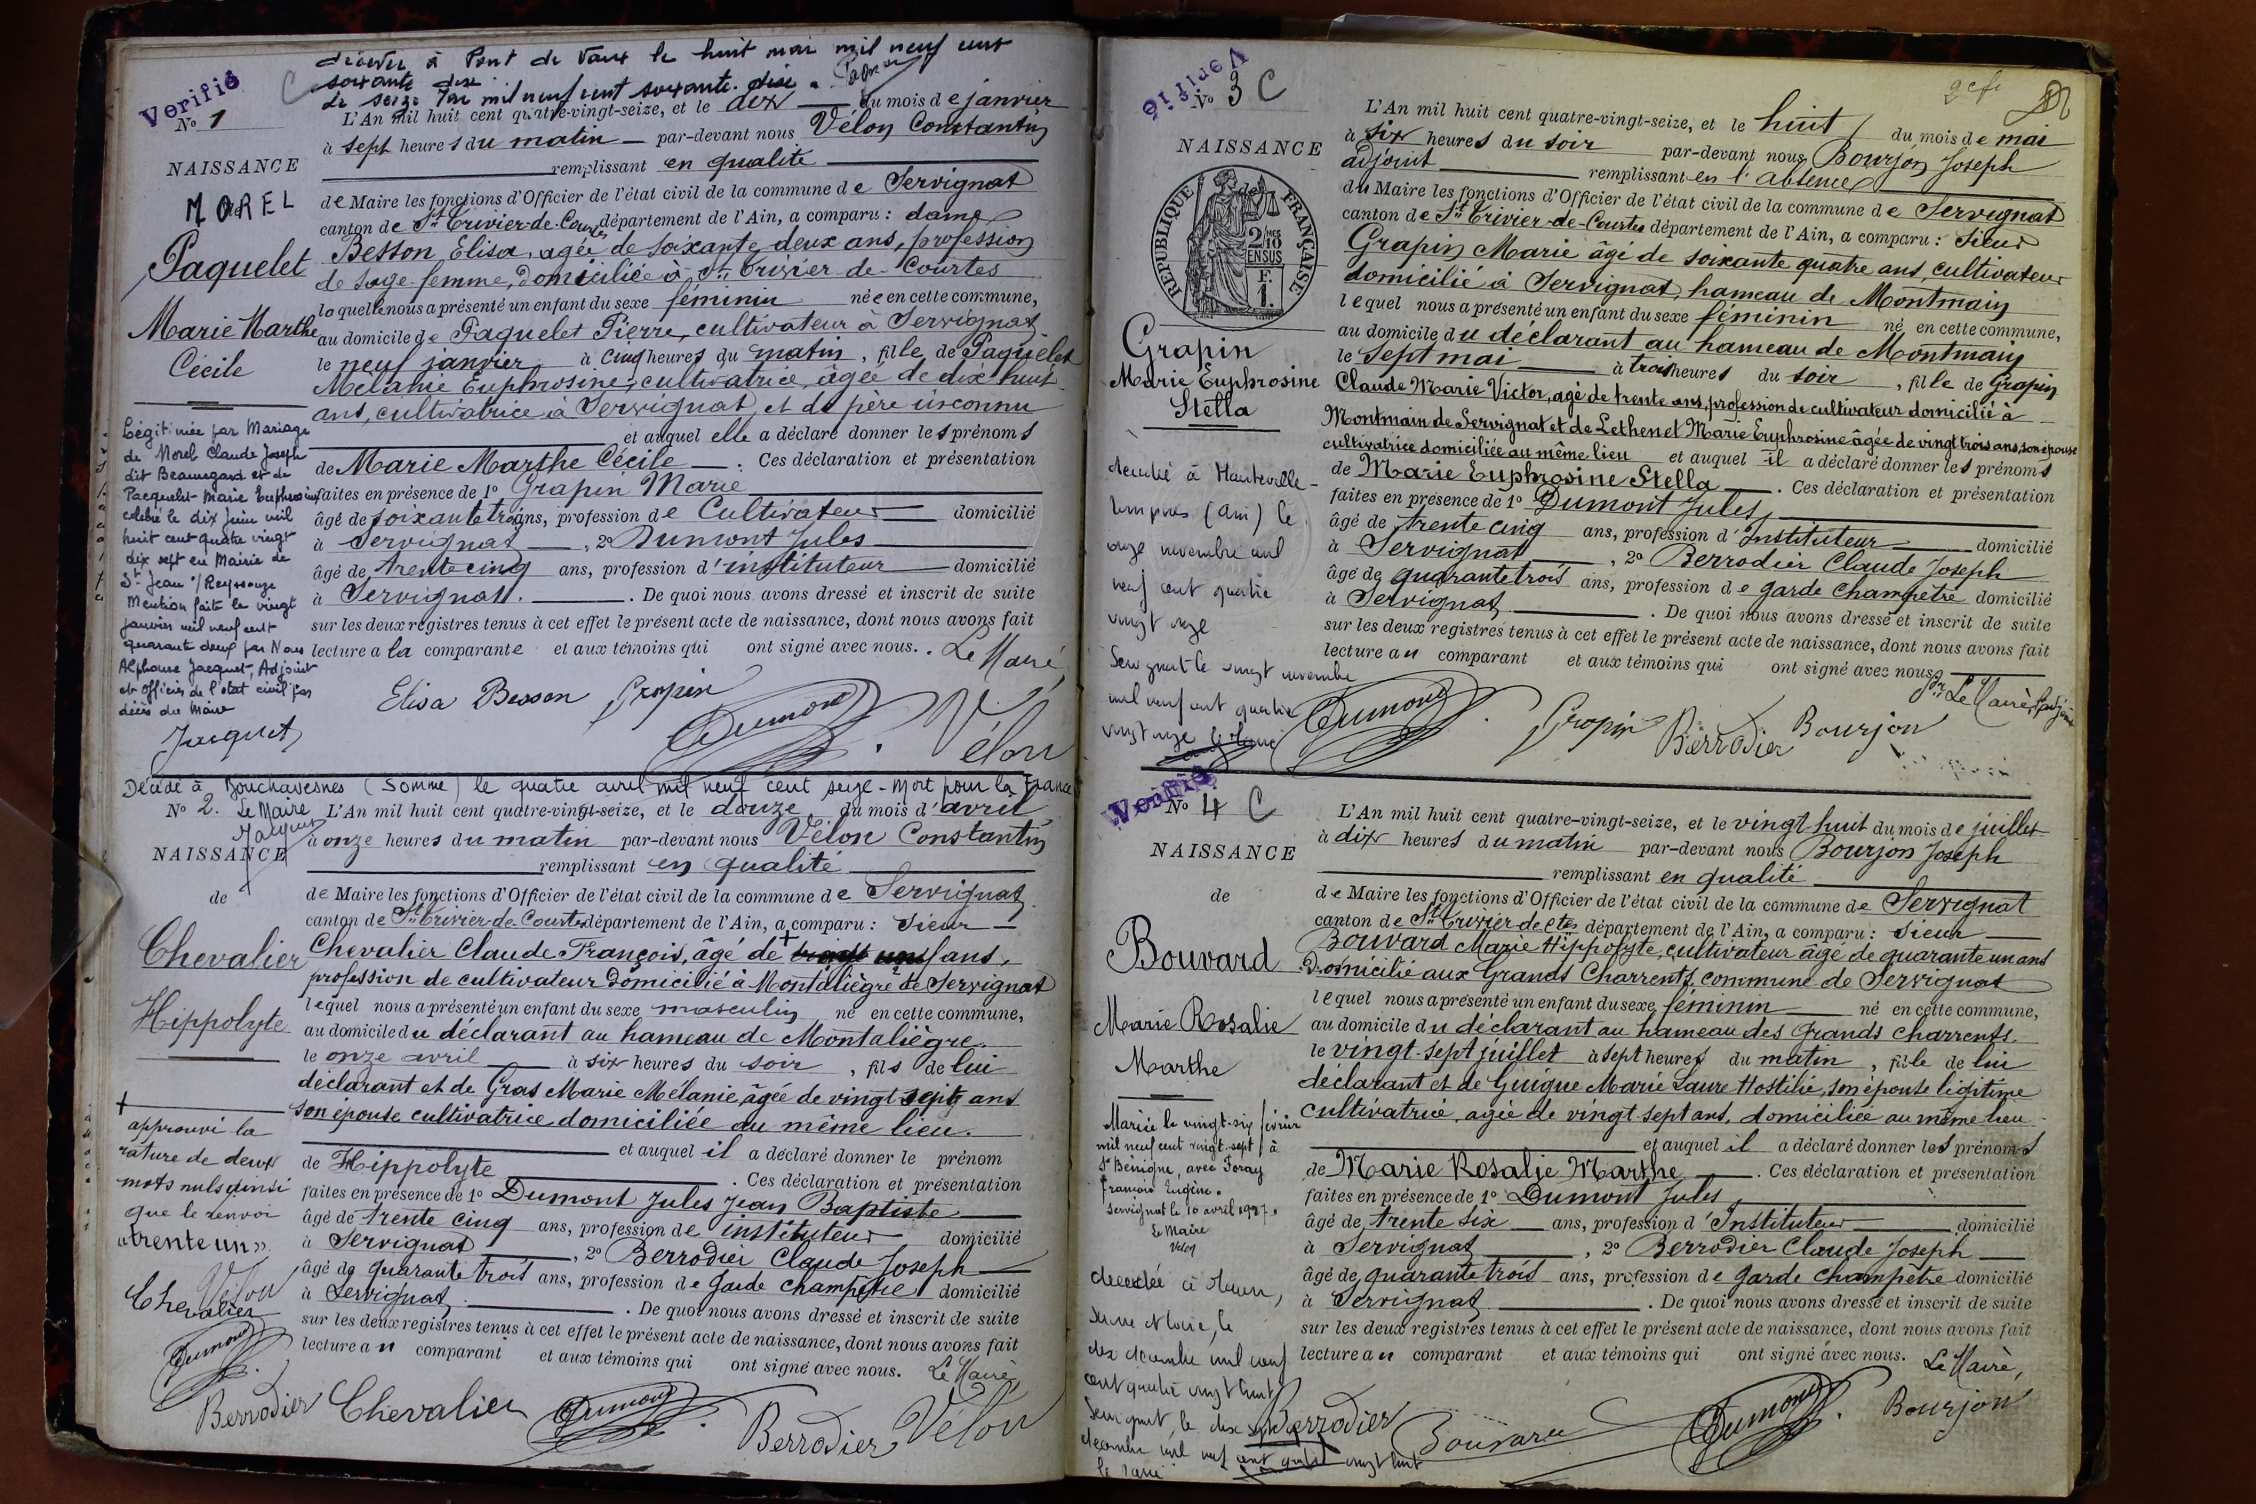 décédée à Pont de Vaux le huit mai mil neuf cent
soixante dix
Le seize mai mil neuf cent soixante dix
Verifié
C
N° 1
NAISSANCE
de
MOREL
Paquelet
Marie Marthe
Cécile
Légitimée par Mariage
de Morel Claude Joseph
dit Beauregard et de
Pacquelet Marie Euphrosine
célébré le dix juin mil
huit cent quatre vingt
dix sept en Mairie de
St Jean s/ Reyssouze
Mention faite le vingt
janvier mil neuf cent
quarante deux par Nous
Alphonse Jacquet, Adjoint
et Officier de l'état civil par
décès du Maire
Jacquet
L'An mil huit cent quatre-vingt-seize, et le dix du mois de janvier
à sept heures du matin par-devant nous Vélon Constantin
remplissant en qualité
de Maire les fonctions d'Officier de l'état civil de la commune de Servignat
canton de St Trivier-de-Courtes département de l'Ain, a comparu : dame
Besson Elisa, agée de soixante deux ans, profession
de sage-femme, domiciliée à St Trivier-de-Courtes
laquelle nous a présenté un enfant du sexe féminin née en cette commune,
au domicile de Paquelet Pierre, cultivateur à Servignat
le neuf janvier à cinq heures du matin, fille de Paquelet
Mélanie Euphrosine, cultivatrice, âgée de dix huit
ans, cultivatrice à Servignat, et de père inconnu
et auquel elle a déclaré donner les prénoms
de Marie Marthe Cécile . Ces déclaration et présentation
faites en présence de 1° Grapin Marie
âgé de soixante trois ans, profession de Cultivateur domicilié
à Servignat , 2° Dumont Jules
âgé de trente cinq ans, profession d'instituteur domicilié
à Servignat. . De quoi nous avons dressé et inscrit de suite
sur les deux registres tenus à cet effet le présent acte de naissance, dont nous avons fait
lecture à la comparante et aux témoins qui ont signé avec nous. Le Maire,
Elisa Besson Grapin
Dumont Vélon
Décédé à Bouchavesnes (Somme) le quatre avril mil neuf cent seize - Mort pour la France
Le Maire
Jacquet
N° 2.
NAISSANCE
de
Chevalier
Hippolyte
approuvé la
rature de deux
mots nuls ainsi
que le renvoi
"trente un".
Vélon
Chevalier
Dumont
L'An mil huit cent quatre-vingt-seize, et le douze du mois d'avril
à onze heures du matin par-devant nous Vélon Constantin
remplissant en qualité
de Maire les fonctions d'Officier de l'état civil de la commune de Servignat
canton de St Trivier-de-Courtes département de l'Ain, a comparu : sieur
Chevalier Claude François, âgé de + ans,
profession de cultivateur domicilié à Montaliègre de Servignat
lequel nous a présenté un enfant du sexe masculin né en cette commune,
au domicile du déclarant au hameau de Montaliègre.
le onze avril à six heures du soir , fils de lui
déclarant et de Gras Marie Mélanie, âgée de vingt sept ans
son épouse cultivatrice domiciliée au même lieu.
et auquel il a déclaré donner le prénom
de Hippolyte . Ces déclaration et présentation
faites en présence de 1° Dumont Jules Jean Baptiste
âgé de trente cinq ans, profession de instituteur domicilié
à Servignat , 2° Berrodier Claude Joseph
âgé de quarante trois ans, profession de garde champêtre domicilié
à Servignat . De quoi nous avons dressé et inscrit de suite
sur les deux registres tenus à cet effet le présent acte de naissance, dont nous avons fait
lecture au comparant et aux témoins qui ont signé avec nous. Le Maire,
Berrodier Chevalier Dumont Berrodier Vélon
Verifié
N° 3 C
NAISSANCE
de
RÉPUBLIQUE FRANÇAISE
2/10 MES
EN SUS
F.
1.
Grapin
Marie Euphrosine
Stella
décédée à Hauteville-
Lompnes (Ain) le
onze novembre mil
neuf cent quatre
vingt onze
Servignat le vingt novembre
mil neuf cent quatre
vingt onze
L'An mil huit cent quatre-vingt-seize, et le huit du mois de mai
à six heures du soir par-devant nous Bourjon Joseph
adjoint remplissant en l'absence
du Maire les fonctions d'Officier de l'état civil de la commune de Servignat
canton de St Trivier-de-Courtes département de l'Ain, a comparu : sieur
Grapin Marie âgé de soixante quatre ans, cultivateur
domicilié à Servignat, hameau de Montmain
lequel nous a présenté un enfant du sexe féminin né en cette commune,
au domicile du déclarant au hameau de Montmain
le sept mai à trois heures du soir , fille de Grapin
Claude Marie Victor, agé de trente ans, profession de cultivateur domicilié à
Montmain de Servignat et de Lethenet Marie Euphrosine âgée de vingt trois ans, son épouse
cultivatrice domiciliée au même lieu et auquel il a déclaré donner les prénoms
de Marie Euphrosine Stella . Ces déclaration et présentation
faites en présence de 1° Dumont Jules,
âgé de trente cinq ans, profession d'Instituteur domicilié
à Servignat , 2° Berrodier Claude Joseph
âgé de quarante trois ans, profession de garde champêtre domicilié
à Servignat . De quoi nous avons dressé et inscrit de suite
sur les deux registres tenus à cet effet le présent acte de naissance, dont nous avons fait
lecture au comparant et aux témoins qui ont signé avec nous.
Pr Le Maire, l'adjoint
Dumont Grapin Berrodier Bourjon
Verifié
N° 4 C
NAISSANCE
de
Bouvard
Marie Rosalie
Marthe
Mariée le vingt-six février
mil neuf cent vingt-sept, à
St Bénigne, avec Foray
François Eugène.
Servignat le 10 avril 1927.
Le Maire
Vélon
décédée à Melun,
Seine et Marne, le
dix décembre mil neuf
cent quatre vingt huit
Servignat, le dix
décembre mil neuf cent quatre vingt huit
le Maire
L'An mil huit cent quatre-vingt-seize, et le vingt huit du mois de juillet
à dix heures du matin par-devant nous Bourjon Joseph
remplissant en qualité
de Maire les fonctions d'Officier de l'état civil de la commune de Servignat
canton de St Trivier-de-Ctes département de l'Ain, a comparu : sieur
Bouvard Marie Hippolyte, cultivateur âgé de quarante un ans
Domicilié aux Grands Charrents, commune de Servignat
lequel nous a présenté un enfant du sexe féminin né en cette commune,
au domicile du déclarant au hameau des Grands Charrents.
le vingt-sept juillet à sept heures du matin , fille de lui
déclarant et de Guigue Marie Laure Hostilie, son épouse légitime
cultivatrice, agée de vingt sept ans, domiciliée au même lieu
et auquel il a déclaré donner les prénoms
de Marie Rosalie Marthe . Ces déclaration et présentation
faites en présence de 1° Dumont Jules,
âgé de trente six ans, profession d'Instituteur domicilié
à Servignat , 2° Berrodier Claude Joseph
âgé de quarante trois ans, profession de garde champêtre domicilié
à Servignat . De quoi nous avons dressé et inscrit de suite
sur les deux registres tenus à cet effet le présent acte de naissance, dont nous avons fait
lecture au comparant et aux témoins qui ont signé avec nous. Le Maire,
Berrodier Bouvard Dumont Bourjon